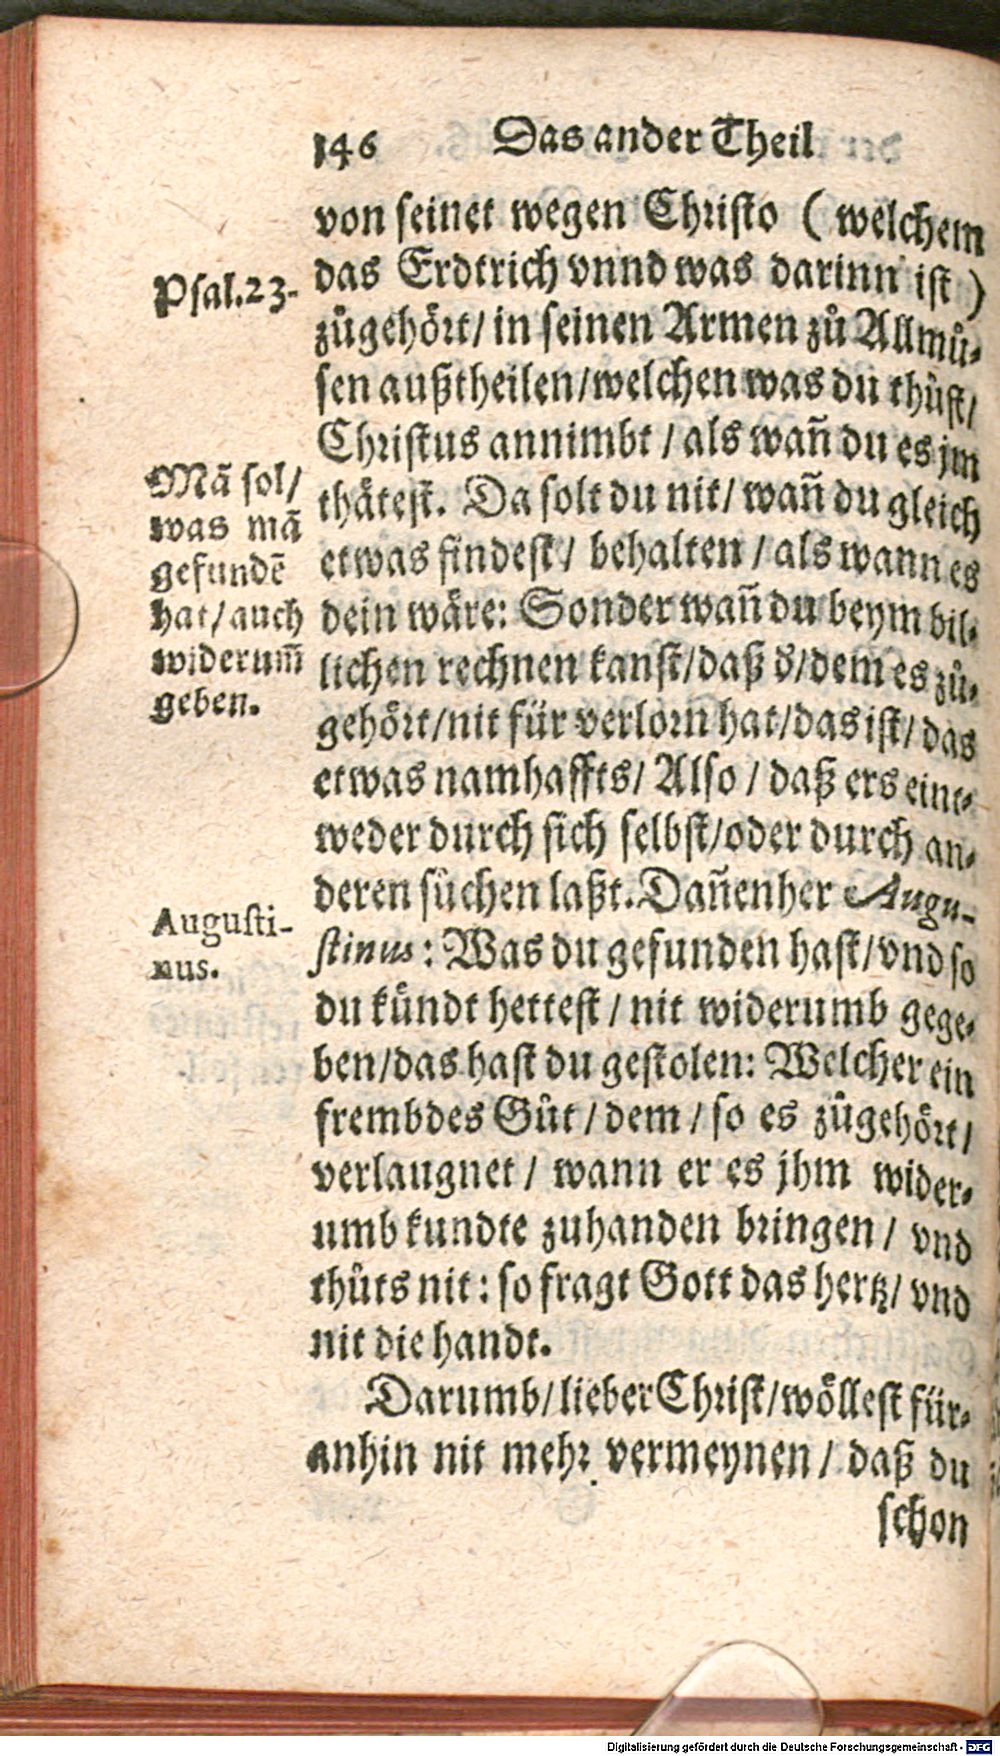 146 Das ander Theil
von seinet wegen Christo ( welchem
das Erdtrich vnnd was darinn ist )
Psal.23.
zůgehört/ in seinen Armen zů Allmů-
sen außtheilen/welchen was du thůst/
Christus annimbt / als wañ du es jm
thätest. Da solt du nit/ wañ du gleich
etwas findest/ behalten / als wann es
dein wäre: Sonder wañ du beym bil-
lichen rechnen kanst/daß d'/dem es zů-
gehört/nit für verlorn hat/das ist/ das
etwas namhaffts/ Also / daß ers eint-
weder durch sich selbst/oder durch an-
deren sůchen laßt. Dañenher Augu-
stinus: Was du gefunden hast/vnd so
du kündt hettest / nit widerumb gege-
ben/das hast du gestolen: Welcher ein
frembdes Gůt / dem / so es zůgehört/
verlaugnet / wann er es jhm wider-
umb kundte zuhanden bringen / vnd
thůts nit: so fragt Gott das hertz/ vnd
nit die handt.
Mã sol/
was mã
gefundē
hat/auch
widerum̃
geben.
Augusti-
nus.
Darumb/lieber Christ/wöllest für-
anhin nit mehr vermeynen / daß du
schon
Digitalisierung gefördert durch die Deutsche Forschungsgemeinschaft - DFG